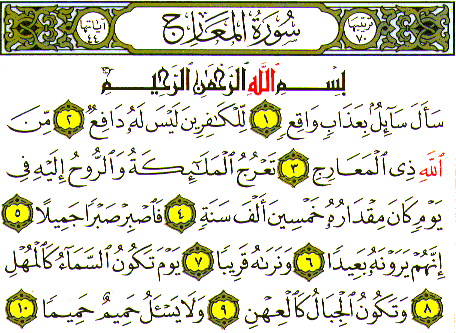 ترتيبها ٧٠ سُورَةُ المَعَارِجِ آياتها ٤٤
بِسْمِ اللَّهِ الرَّحْمَٰنِ الرَّحِيمِ
سَأَلَ سَآئِلٌۢ بِعَذَابٍ وَاقِعٍ ١ لِّلْكَٰفِرِينَ لَيْسَ لَهُۥ دَافِعٌ ٢ مِّنَ
ٱللَّهِ ذِى ٱلْمَعَارِجِ ٣ تَعْرُجُ ٱلْمَلَٰٓئِكَةُ وَٱلرُّوحُ إِلَيْهِ فِى
يَوْمٍ كَانَ مِقْدَارُهُۥ خَمْسِينَ أَلْفَ سَنَةٍ ٤ فَٱصْبِرْ صَبْرًا جَمِيلًا ٥
إِنَّهُمْ يَرَوْنَهُۥ بَعِيدًا ٦ وَنَرَىٰهُ قَرِيبًا ٧ يَوْمَ تَكُونُ ٱلسَّمَآءُ كَٱلْمُهْلِ
٨ وَتَكُونُ ٱلْجِبَالُ كَٱلْعِهْنِ ٩ وَلَا يَسْـَٔلُ حَمِيمٌ حَمِيمًا ١٠